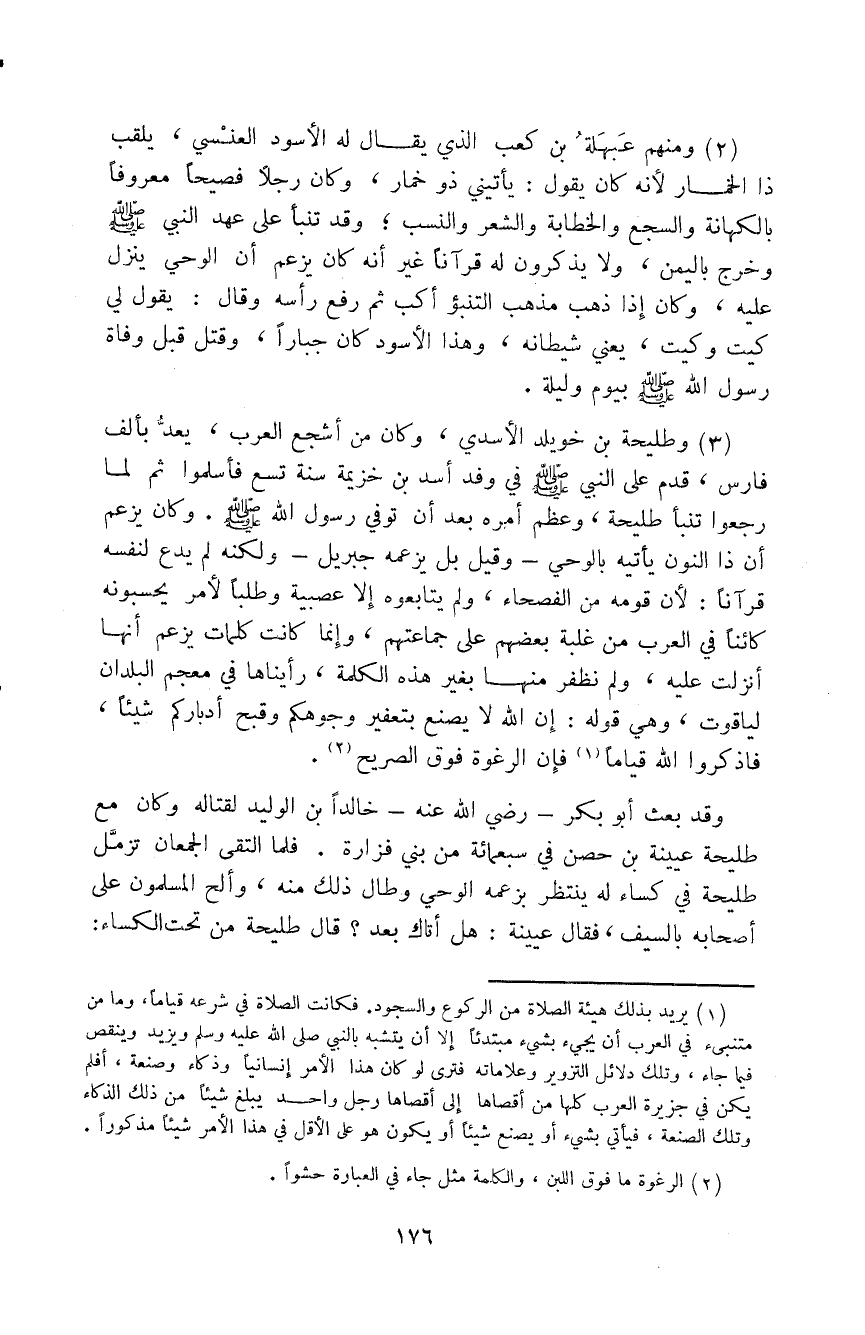 (٢) ومنهم عَبهَلة ُ بن كعب الذي يقـــال له الأسود العنْسي ، يلقب
ذا الخمـــار لأنه كان يقول : يأتيني ذو خمار ، وكان رجلاً فصيحاً معروفاً
بالكهانة والسجع والخطابة والشعر والنسب ؛ وقد تنبأ على عهد النبي ﷺ
وخرج باليمن ، ولا يذكرون له قرآناً غير أنه كان يزعم أن الوحي ينزل
عليه ، وكان إذا ذهب مذهب التنبؤ أكب ثم رفع رأسه وقال : يقول لي
كيت وكيت ، يعني شيطانه ، وهذا الأسود كان جباراً ، وقتل قبل وفاة
رسول الله ﷺ بيوم وليلة .
(٣) وطليحة بن خويلد الأسدي ، وكان من أشجع العرب ، يعدُّ بألف
فارس ، قدم على النبي ﷺ في وفد أسد بن خزيمة سنة تسع فأسلموا ثم لمـا
رجعوا تنبأ طليحة ، وعظم أمره بعد أن توفي رسول الله ﷺ . وكان يزعم
أن ذا النون يأتيه بالوحي – وقيل بل يزعمه جبريل – ولكنه لم يدع لنفسه
قرآناً : لأن قومه من الفصحاء ، ولم يتابعوه إلا عصبية وطلباً لأمر يحسبونه
كائناً في العرب من غلبة بعضهم على جماعتهم ، وإنما كانت كلمات يزعم أنهـا
أنزلت عليه ، ولم نظفر منهـــا بغير هذه الكلمة ، رأيناها في معجم البلدان
لياقوت ، وهي قوله : إن الله لا يصنع بتعفير وجوهكم وقبح أدباركم شيئاً ،
فاذكروا الله قياماً (١) فإن الرغوة فوق الصريح (٢) .
وقد بعث أبو بكر – رضي الله عنه – خالداً بن الوليد لقتاله وكان مع
طليحة عيينة بن حصن في سبعمائة من بني فزارة . فلما التقى الجمعان تزمَّل
طليحة في كساء له ينتظر بزعمه الوحي وطال ذلك منه ، وألح المسلمون على
أصحابه بالسيف ، فقال عيينة : هل أتاك بعد ؟ قال طليحة من تحت الكساء:
(١) يريد بذلك هيئة الصلاة من الركوع والسجود. فكانت الصلاة في شرعه قياماً، وما من
متنبىء في العرب أن يجيء بشيء مبتدئاً إلا أن يتشبه بالنبي صلى الله عليه وسلم ويزيد وينقص
فيما جاء ، وتلك دلائل التزوير وعلاماته فترى لو كان هذا الأمر إنسانياً وذكاء وصنعة ، أفلم
يكن في جزيرة العرب كلها من أقصاها إلى أقصاها رجل واحـــد يبلغ شيئاً من ذلك الذكاء
وتلك الصنعة ، فيأتي بشيء أو يصنع شيئاً أو يكون هو على الأقل في هذا الأمر شيئاً مذكوراً .
(٢) الرغوة ما فوق اللبن ، والكلمة مثل جاء في العبارة حشواً .
١٧٦